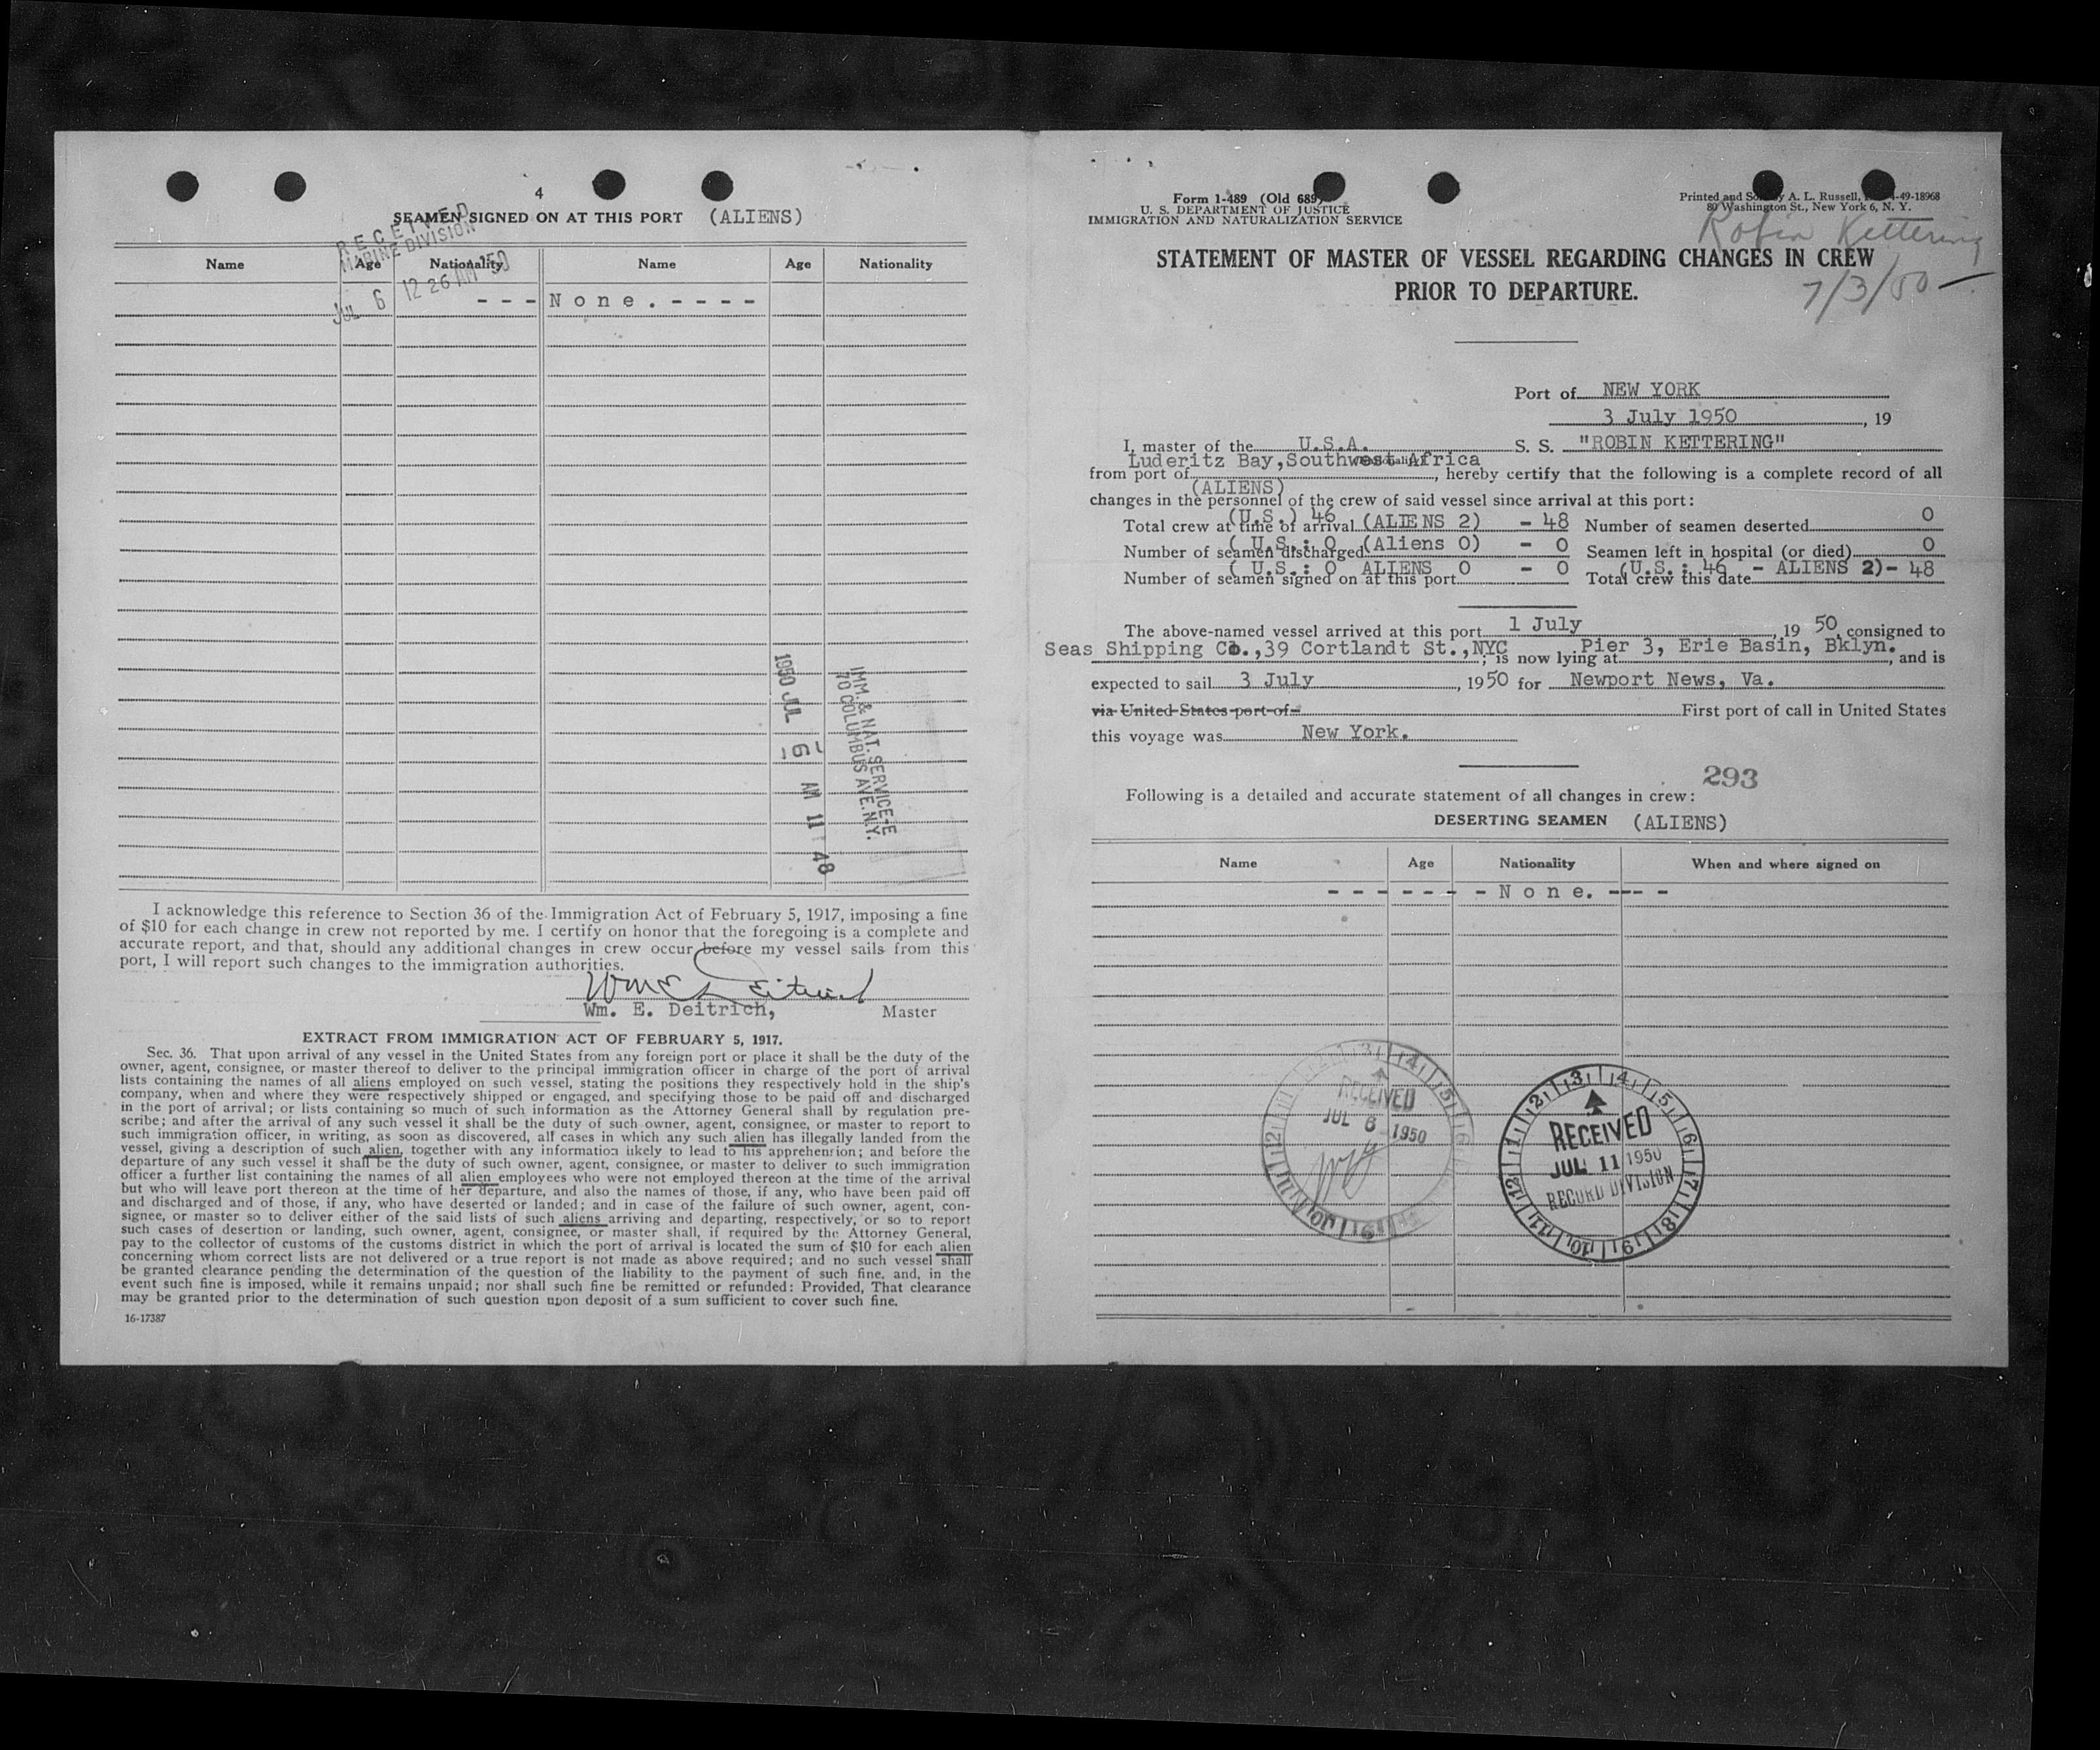 4
SEAMEN SIGNED ON AT THIS PORT (ALIENS)
RECEIVED
MARINE DIVISION
JUL 6 12 26 AM '50
Name Age Nationality Name Age Nationality
- - - None. - - - -
1950 JUL -6 AM 11 48
IMM. & NAT. SERVICE-E
70 COLUMBUS AVE. N.Y.
I acknowledge this reference to Section 36 of the Immigration Act of February 5, 1917, imposing a fine
of $10 for each change in crew not reported by me. I certify on honor that the foregoing is a complete and
accurate report, and that, should any additional changes in crew occur before my vessel sails from this
port, I will report such changes to the immigration authorities.
Wm E Deitrich
Wm. E. Deitrich, Master
EXTRACT FROM IMMIGRATION ACT OF FEBRUARY 5, 1917.
Sec. 36. That upon arrival of any vessel in the United States from any foreign port or place it shall be the duty of the
owner, agent, consignee, or master thereof to deliver to the principal immigration officer in charge of the port of arrival
lists containing the names of all aliens employed on such vessel, stating the positions they respectively hold in the ship's
company, when and where they were respectively shipped or engaged, and specifying those to be paid off and discharged
in the port of arrival; or lists containing so much of such information as the Attorney General shall by regulation pre-
scribe; and after the arrival of any such vessel it shall be the duty of such owner, agent, consignee, or master to report to
such immigration officer, in writing, as soon as discovered, all cases in which any such alien has illegally landed from the
vessel, giving a description of such alien, together with any information likely to lead to his apprehension; and before the
departure of any such vessel it shall be the duty of such owner, agent, consignee, or master to deliver to such immigration
officer a further list containing the names of all alien employees who were not employed thereon at the time of the arrival
but who will leave port thereon at the time of her departure, and also the names of those, if any, who have been paid off
and discharged and of those, if any, who have deserted or landed; and in case of the failure of such owner, agent, con-
signee, or master so to deliver either of the said lists of such aliens arriving and departing, respectively, or so to report
such cases of desertion or landing, such owner, agent, consignee, or master shall, if required by the Attorney General,
pay to the collector of customs of the customs district in which the port of arrival is located the sum of $10 for each alien
concerning whom correct lists are not delivered or a true report is not made as above required; and no such vessel shall
be granted clearance pending the determination of the question of the liability to the payment of such fine, and, in the
event such fine is imposed, while it remains unpaid; nor shall such fine be remitted or refunded: Provided, That clearance
may be granted prior to the determination of such question upon deposit of a sum sufficient to cover such fine.
16-17387
Form 1-489 (Old 689)
U. S. DEPARTMENT OF JUSTICE
IMMIGRATION AND NATURALIZATION SERVICE
Printed and Sold by A. L. Russell, -49-18968
80 Washington St., New York 6, N. Y.
Robin Kettering
7/3/50
STATEMENT OF MASTER OF VESSEL REGARDING CHANGES IN CREW
PRIOR TO DEPARTURE.
Port of NEW YORK
3 July 1950, 19
I, master of the U.S.A. S. S. "ROBIN KETTERING"
Luderitz Bay, Southwest Africa
from port of, hereby certify that the following is a complete record of all
(ALIENS)
changes in the personnel of the crew of said vessel since arrival at this port:
(U.S.) 46
Total crew at time of arrival (ALIENS 2) - 48 Number of seamen deserted 0
( U.S.: 0 (Aliens 0) - 0
Number of seamen discharged Seamen left in hospital (or died) 0
( U.S.: 0 ALIENS 0 - 0 (U.S.: 46 - ALIENS 2) - 48
Number of seamen signed on at this port Total crew this date
The above-named vessel arrived at this port 1 July, 1950, consigned to
Seas Shipping Co., 39 Cortlandt St., NYC; is now lying at Pier 3, Erie Basin, Bklyn., and is
expected to sail 3 July, 1950 for Newport News, Va.
via United States port of First port of call in United States
this voyage was New York.
293
Following is a detailed and accurate statement of all changes in crew:
DESERTING SEAMEN (ALIENS)
Name Age Nationality When and where signed on
- - - - - - - None. - - - -
RECEIVED
JUL 6 1950
RECEIVED
JUL 11 1950
RECORD DIVISION